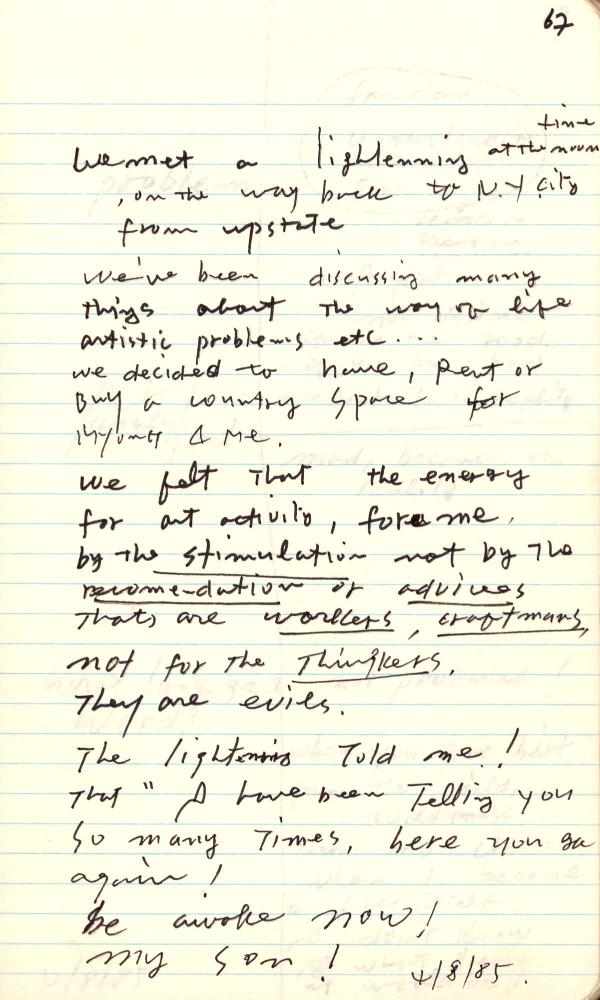 67
time
We met a lightenning at the noon
, on the way back to N.Y city
from upstate
we've been discussing many
things about the way of life
artistic problems etc....
we decided to have, Rent or
Buy a country space for
& Me.
we felt that the energy
for art activity, for me.
by the stimulation not by the
recomendation or advices
Thats are workers, craftmans,
not for the Thingkers.
They are evils.
The lightening Told me!
That " I have been Telling you
So many Times, here you go
again!
be awake now!
my son!
4/8/85.